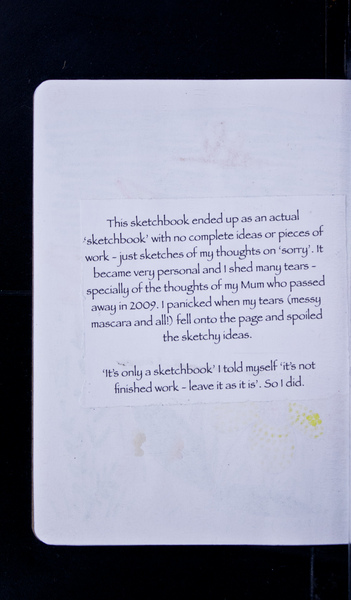 This sketchbook ended up as an actual
'sketchbook' with no complete ideas or pieces of
work - just sketches of my thoughts on 'sorry'. It
became very personal and I shed many tears -
specially of the thoughts of my Mum who passed
away in 2009. I panicked when my tears (messy
mascara and all!) fell onto the page and spoiled
the sketchy ideas.
'It's only a sketchbook' I told myself 'it's not
finished work - leave it as it is'. So I did.